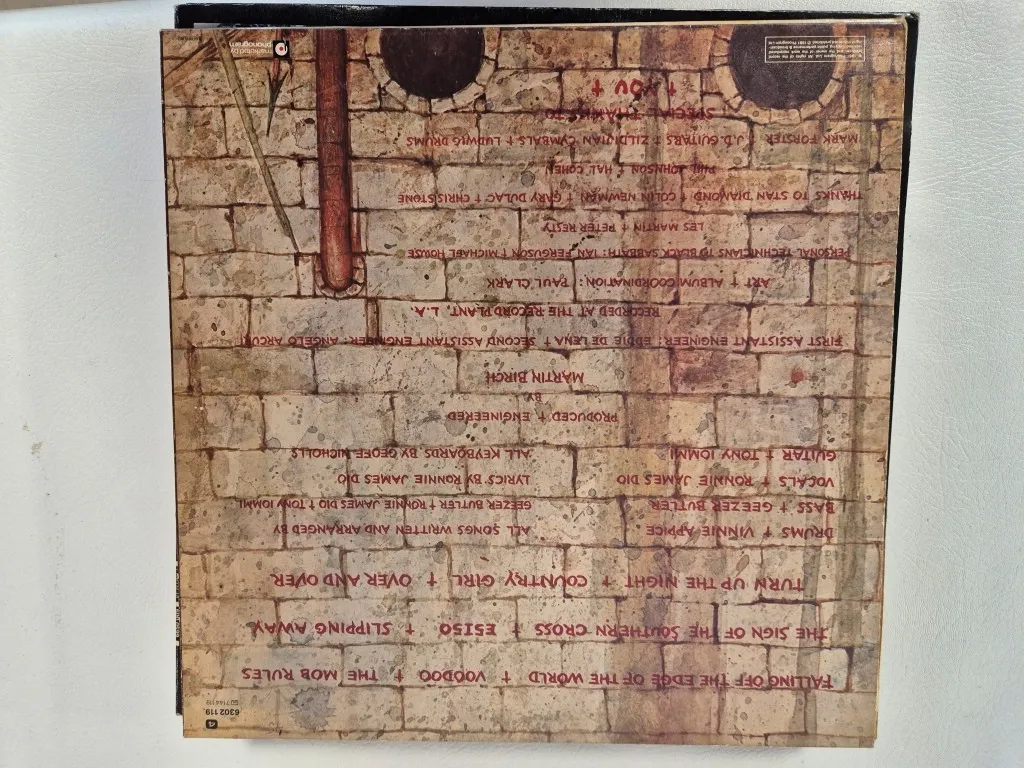 6302 119
FALLING OFF THE EDGE OF THE WORLD † VOODOO † THE MOB RULES
THE SIGN OF THE SOUTHERN CROSS † E5150 † SLIPPING AWAY
TURN UP THE NIGHT † COUNTRY GIRL † OVER AND OVER
DRUMS † VINNIE APPICE
BASS † GEEZER BUTLER
VOCALS † RONNIE JAMES DIO
GUITAR † TONY IOMMI
ALL SONGS WRITTEN AND ARRANGED BY
GEEZER BUTLER † RONNIE JAMES DIO † TONY IOMMI
LYRICS BY RONNIE JAMES DIO
ALL KEYBOARDS BY GEOFF NICHOLLS
PRODUCED † ENGINEERED
BY
MARTIN BIRCH
FIRST ASSISTANT ENGINEER: EDDIE DE LENA † SECOND ASSISTANT ENGINEER: ANGELO ARCURI
RECORDED AT THE RECORD PLANT, L.A.
ART † ALBUM COORDINATION: PAUL CLARK
PERSONAL TECHNICIANS TO BLACK SABBATH: IAN FERGUSON † MICHAEL HOWSE
LES MARTIN † PETER RESTY
THANKS TO STAN DIAMOND † COLIN NEWMAN † GARY DULAC † CHRIS STONE
PHIL JOHNSON † HAL COHEN
MARK FORSTER † J.D. GUITARS † ZILDJIAN CYMBALS † LUDWIG DRUMS
SPECIAL THANKS TO
† YOU †
marketed by
phonogram